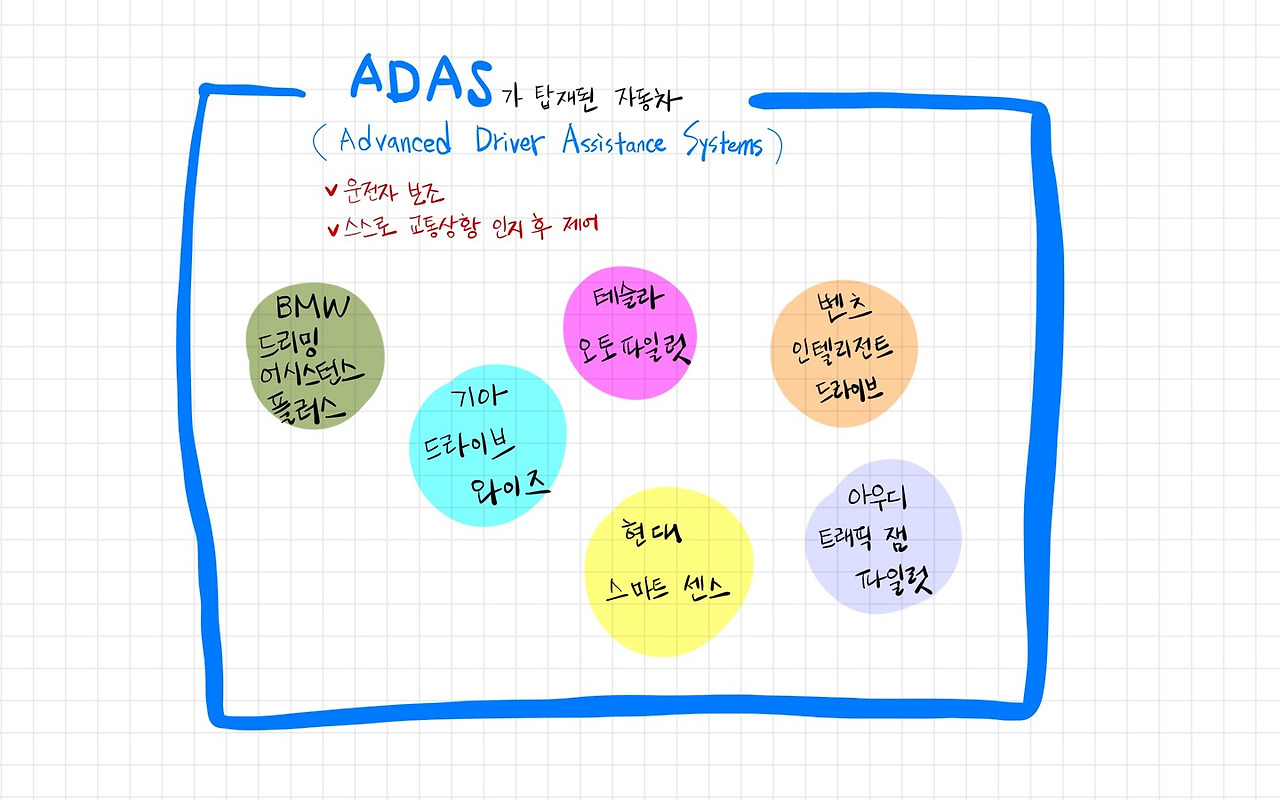 ADAS가 탑재된 자동차
(Advanced Driver Assistance Systems)
✓운전자 보조
✓스스로 교통상황 인지 후 제어
BMW
드리밍
어시스턴스
플러스
기아
드라이브
와이즈
테슬라
오토파일럿
현대
스마트 센스
벤츠
인텔리전트
드라이브
아우디
트래픽 잼
파일럿